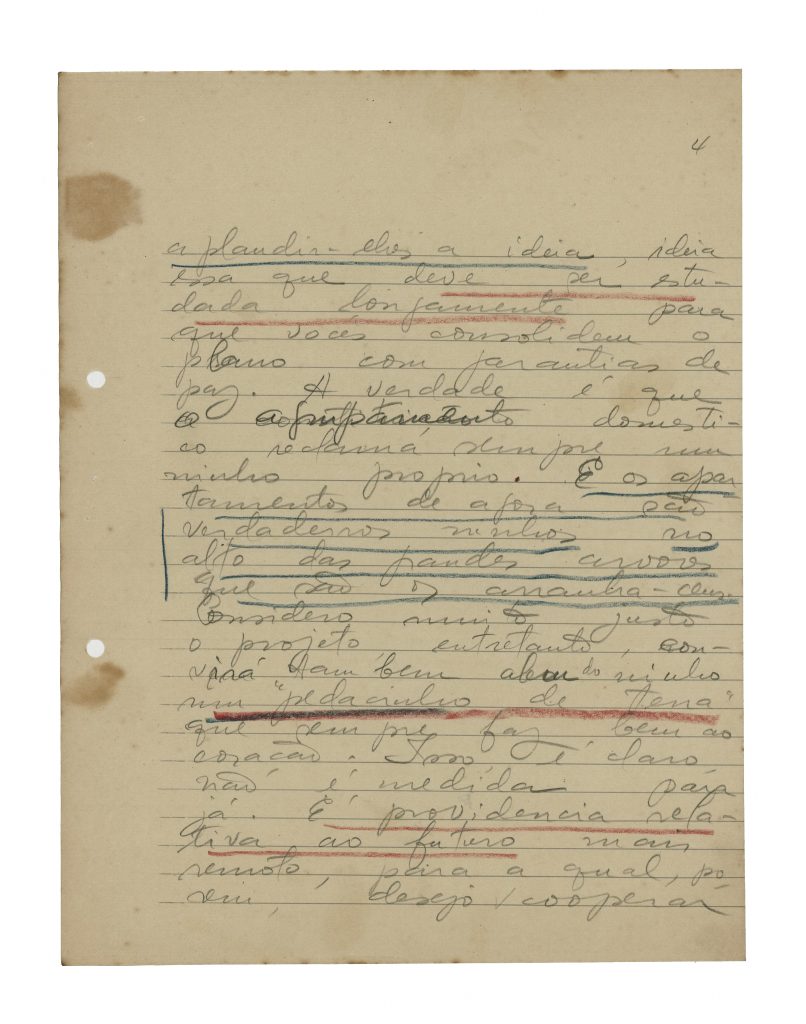 4
aplaudir-lhes a ideia, ideia
essa que deve ser estu-
dada longamente para
que vocês consolidem o
plano com garantias de
paz. A verdade é que
o agrupamento domesti-
co reclama sempre um
ninho proprio. E os apar
tamentos de agora são
verdadeiros ninhos no
alto das grandes arvores
que são os arranha-ceus.
Considero muito justo
o projeto, entretanto, con-
virá tambem alem do ninho
um "pedacinho de terra"
que sempre faz bem ao
coração. Isso, é claro,
não é medida para
já. É providencia rela-
tiva ao futuro mais
remoto, para a qual, po
rem, desejo cooperar